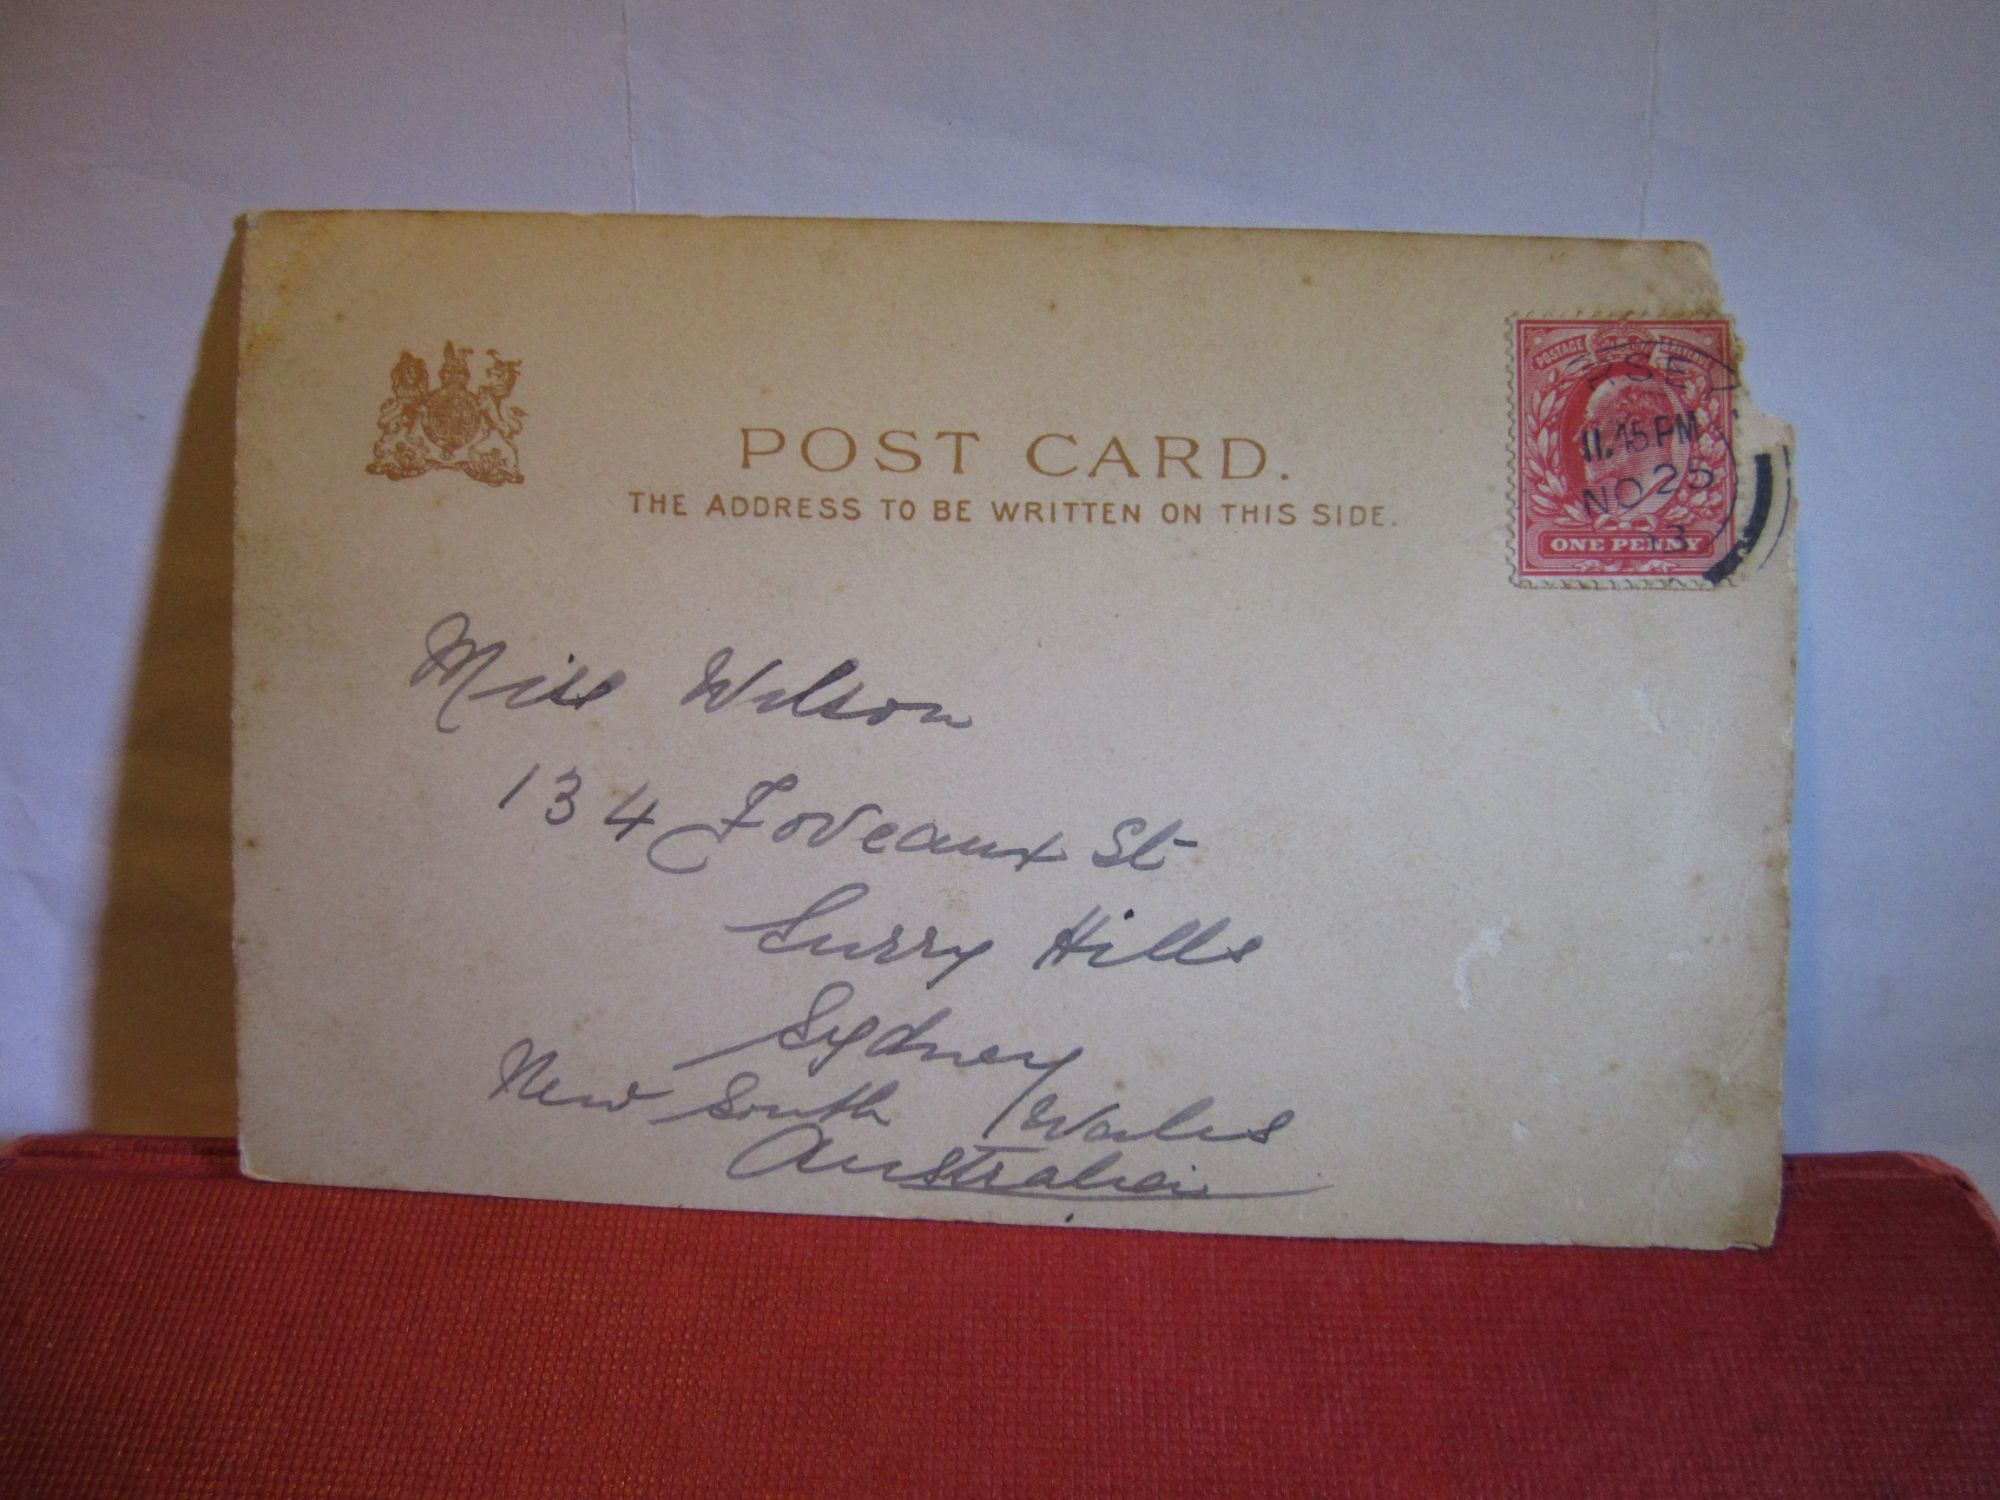 POST CARD.
THE ADDRESS TO BE WRITTEN ON THIS SIDE.
POSTAGE & REVENUE
RSEY
11.45 PM
NO 25
13
ONE PENNY
Miss Wilson
134 Foveaux St
Surry Hills
Sydney
New South Wales
Australia